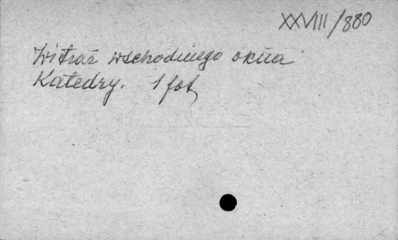 XXVIII/880
Witraż wschodniego okna
Katedry. 1 fot,